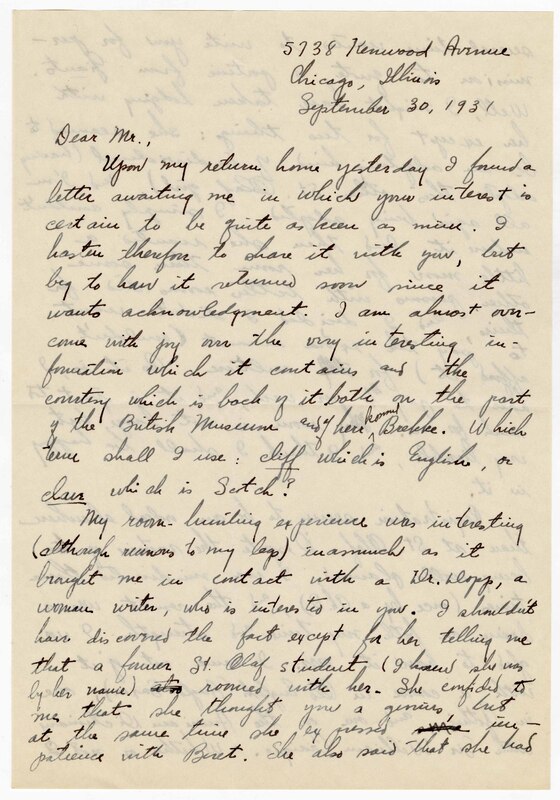 5738 Kenwood Avenue
Chicago, Illinois
September 30, 1931
Dear Mr.,
Upon my return home yesterday I found a
letter awaiting me in which your interest is
certain to be quite as keen as mine. I
hasten therefor to share it with you, but
beg to have it returned soon since it
wants acknowledgment. I am almost over-
come with joy over the very interesting in-
formation which it contains and the
courtesy which is back of it both on the part
of the British Museum and of herr Brekke. Which
term shall I use: cliff which is English, or
which is Scotch?
My room-hunting experience was interesting
(although ruinous to my legs) inasmuch as it
brought me in contact with a Dr. Dopp, a
woman writer, who is interested in you. I shouldn't
have discovered the fact except for her telling me
that a former St. Olaf student (I knew she was
by her name) roomed with her. She confided to
me that she thought you a genius but
at the same time she expressed im-
patience with Beret. She also said that she had